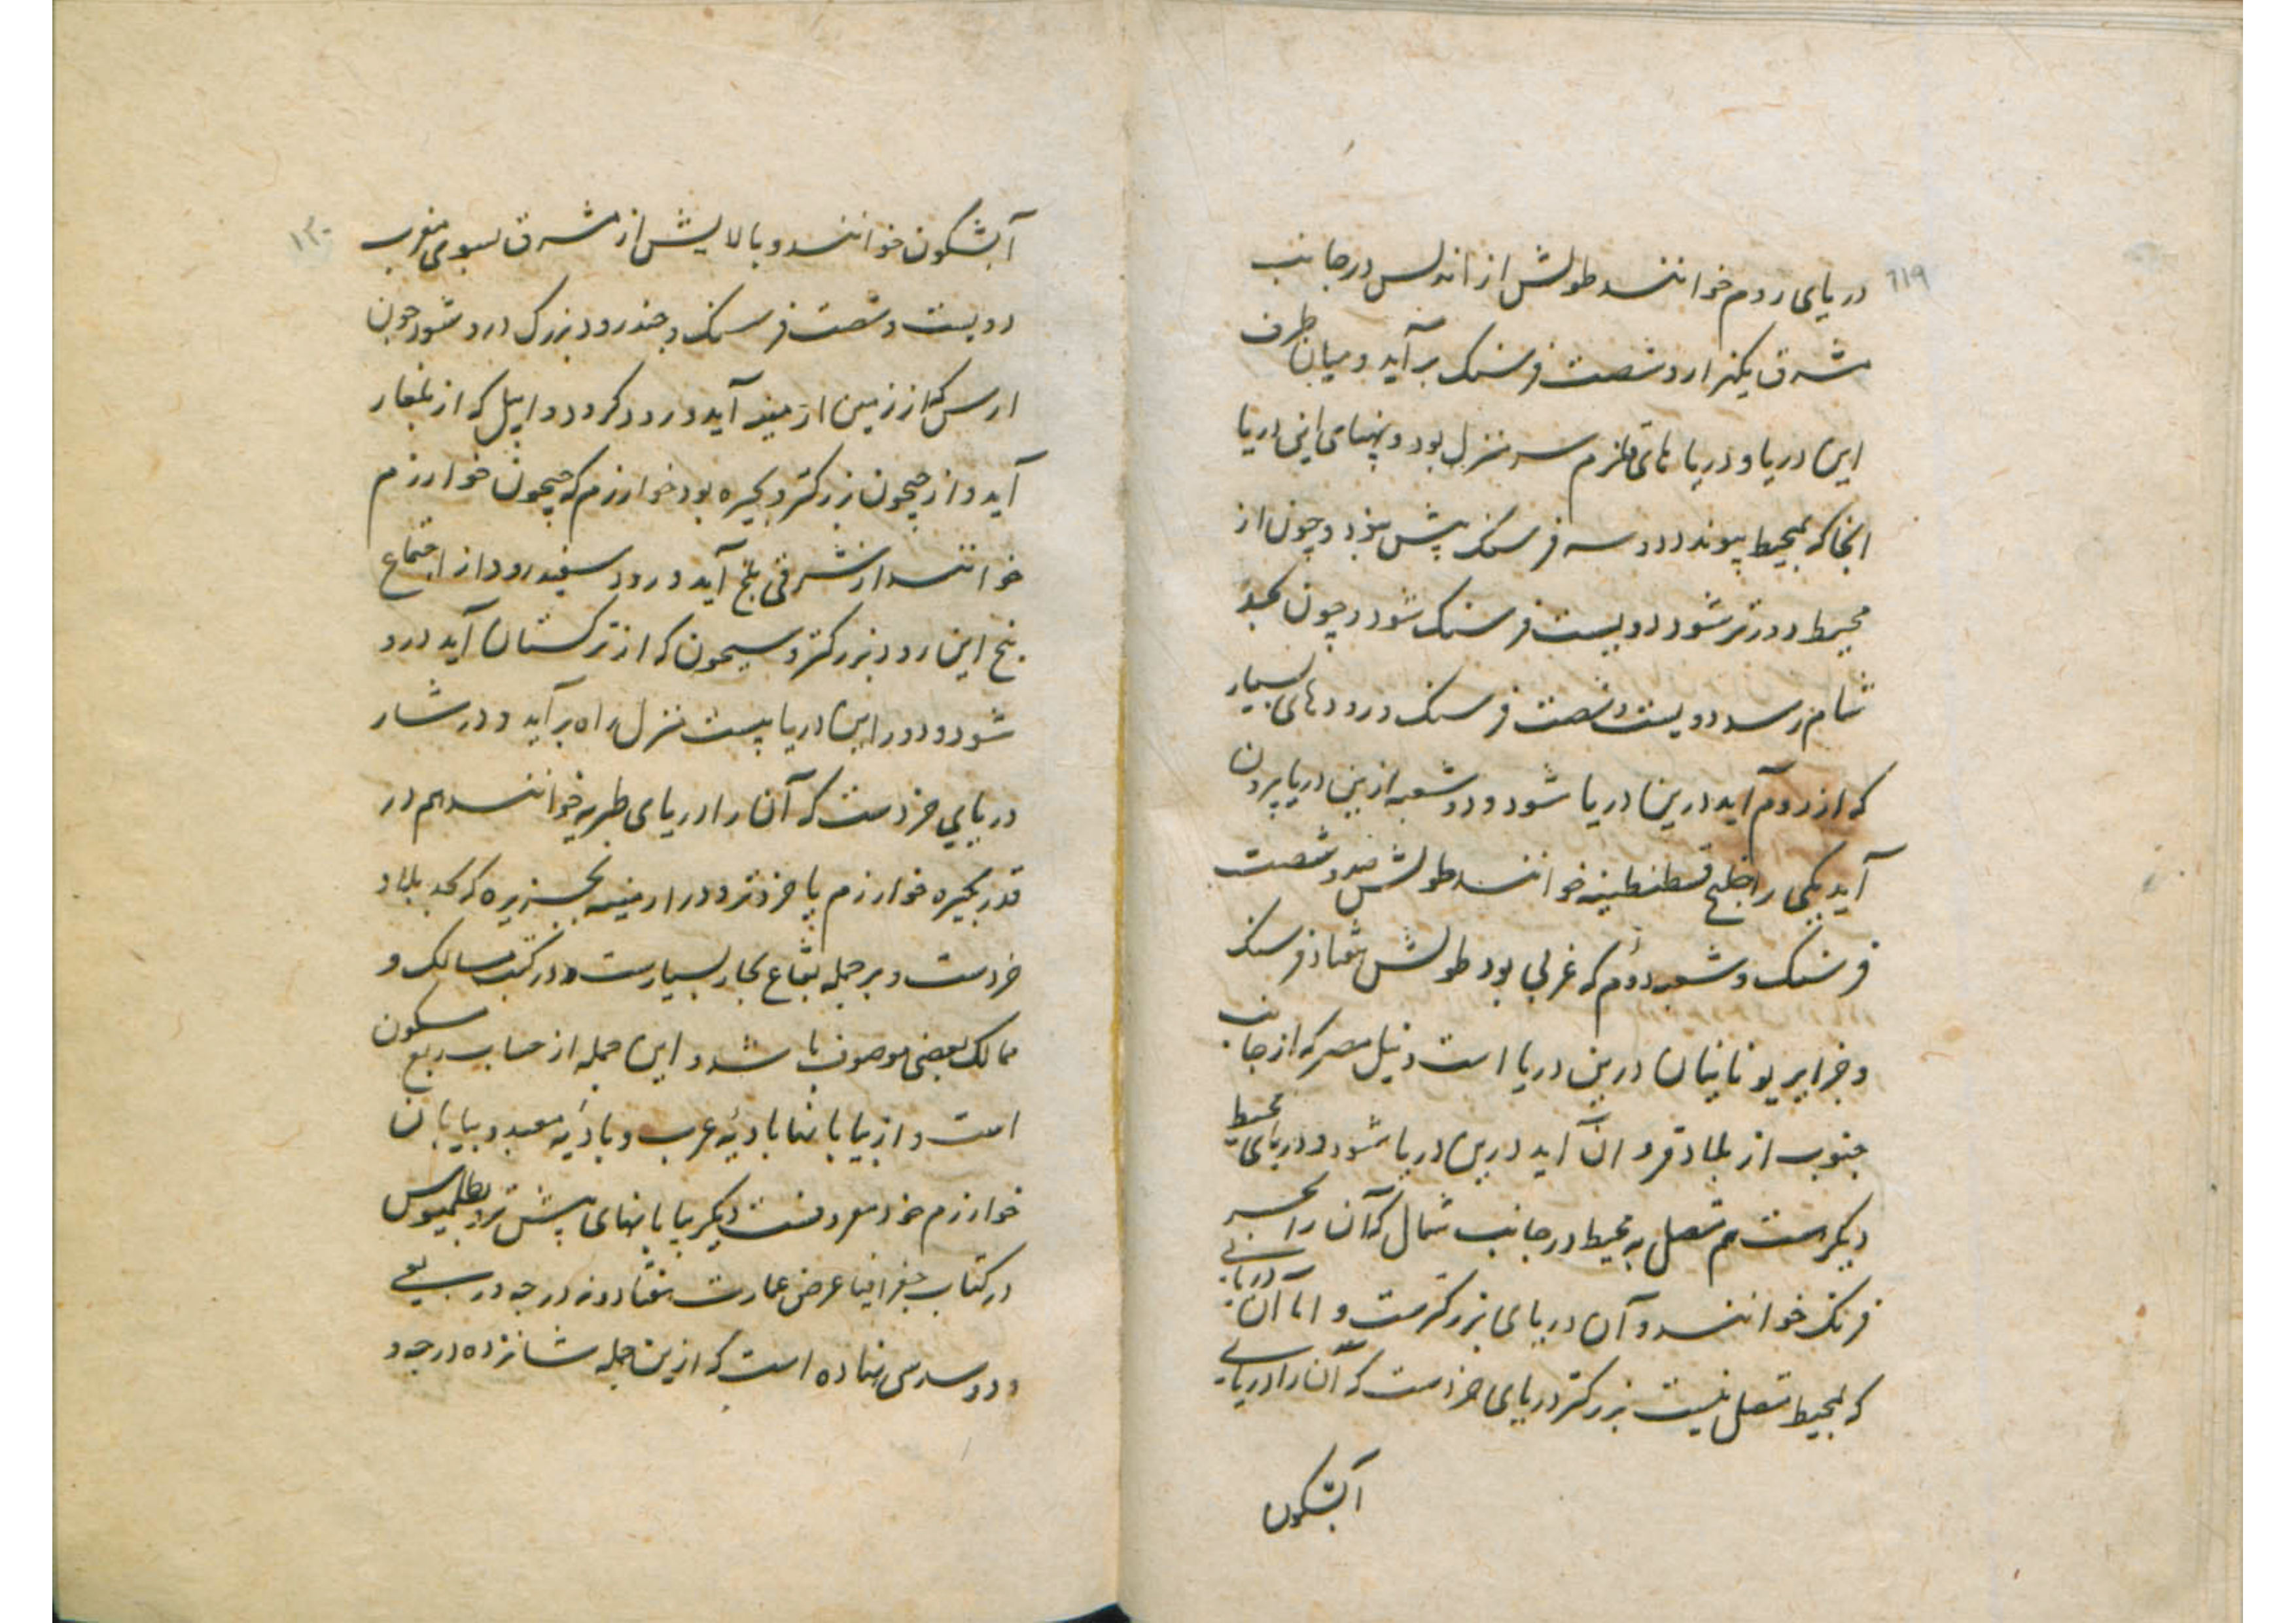 ۱۱۹
دریای روم خوانند طولش از اندلس در جانب
مشرق یکهزار و شصت فرسنک بر آید و میان طرف
این دریا و دریا های قلزم سه منزل بود و پهنای این دریا
انجا که بمحیط پیوندد سه فرسنک پیش نبود و چون از
محیط دورتر شود دویست فرسنک شود و چون بحد
شام رسد دویست و شصت فرسنک و رودهای بسیار
که از روم آید درین دریا شود و دو شعبه ازین دریا بیرون
آید یکی را خلیج قسطنطینه خوانند طولش صد و شصت
فرسنک و شعبه دوم که غربی بود طولش هفتاد فرسنک
و جزایر یونانیان درین دریا است و نیل مصر که از جانب
جنوب از بلاد آید درین دریا شود و دریای محیط
دیگرست هم متصل به محیط در جانب شمال که آن را بحر
فرنک خوانند و آن دریای بزرکترست و اما آن دریایی
که بمحیط متصل نیست بزرکتر دریای خزرست که آن را دریایی
آبشکون
۱۲۰
آبشکون خوانند و بالایش از مشرق بسوی مغرب
دویست و شصت فرسنک و چند رود بزرک درو شود چون
ارس که از زمین ارمینه آید و رود کر و رود اپیل که از بلغار
آید و از جیحون بزرکتر و بحیره بود خوارزم که جیحون خوارزم
خوانند از شرقی بلخ آید و رود سفیدرود از اجتماع
پنج این رود بزرکتر و سیحون که از ترکستان آید درو
شود و دور این دریا بیست منزل راه بر آید و در شمار
دریایی خردست که آن را دریای طبریه خوانند هم در
قدر بحیره خوارزم یا خردتر و در ارمینه بجزیره که بحد بلاد
خردست و بر جمله بقاع بحار بسیارست و در کتب مسالک و
ممالک بعضی موصوف باشد و این جمله از حساب ربع مسکون
است و از بیابانها بادیهٔ عرب و بادیه معبد و بیابان
خوارزم خود معروفست دیگر بیابانهای پیش نزد بطلمیوس
در کتاب جغرافیا عرض عمارت هفتاد و نه درجه و ربعی
و دو سدسی نهاده است که ازین جمله شانزده درجه و